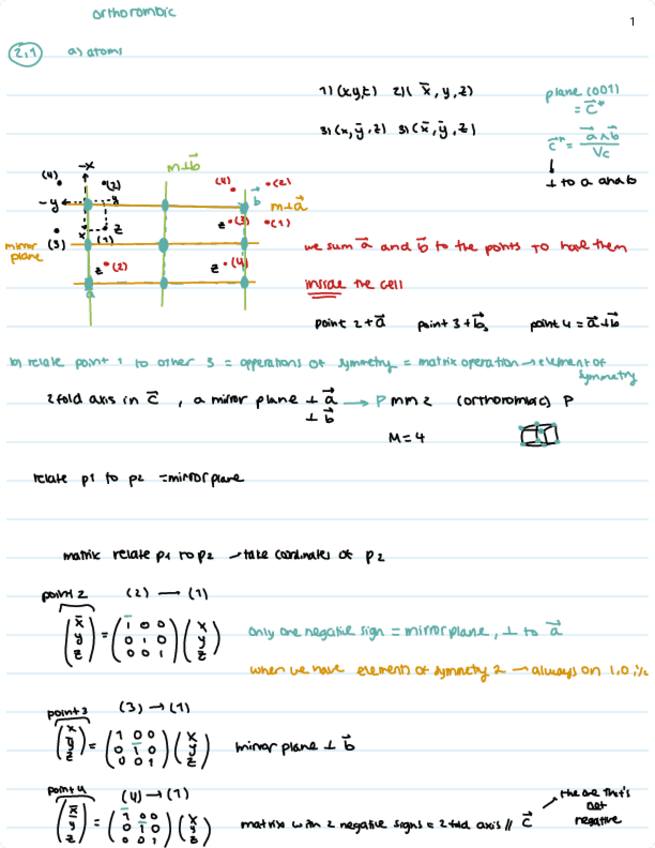 orthorombic
1
2,1 a) atoms
1) (x,y,z) 2) ( x̄, y, z)
3) (x, ȳ, z) 3) (x̄, ȳ, z)
plane (001)
= c⃗*
c⃗* = a⃗ ∧ b⃗ / Vc
⊥ to a and b
-x
m⊥b⃗
(4) (2) (4) (2)
-y b⃗ m⊥a⃗
x z z (3) (1)
(3) (1)
mirror
plane
z (2) z (4)
a
we sum a⃗ and b⃗ to the points to have them
inside the cell
point 2 + a⃗ point 3 + b⃗ point 4 = a⃗ + b⃗
b) relate point 1 to other 3 = opperations of symmetry = matrix operation → element of
symmetry
2 fold axis in c⃗ , a mirror plane ⊥ a⃗ → P mm2 (orthorombic) P
⊥ b⃗
M = 4
relate p1 to p2 = mirror plane
matrix relate p1 to p2 → take coordinates of p2
point 2 (2) → (1)
(x̄ y z) = (1̄ 0 0 0 1 0 0 0 1) (x y z) only one negative sign = mirror plane, ⊥ to a⃗
when we have element of symmetry 2 → always on 1,0,½
point 3 (3) → (1)
(x ȳ z) = (1 0 0 0 1̄ 0 0 0 1) (x y z) mirror plane ⊥ b⃗
point 4 (4) → (1)
(x̄ ȳ z) = (1̄ 0 0 0 1̄ 0 0 0 1) (x y z) matrix with 2 negative signs = 2 fold axis // c⃗
the one that's
not
negative